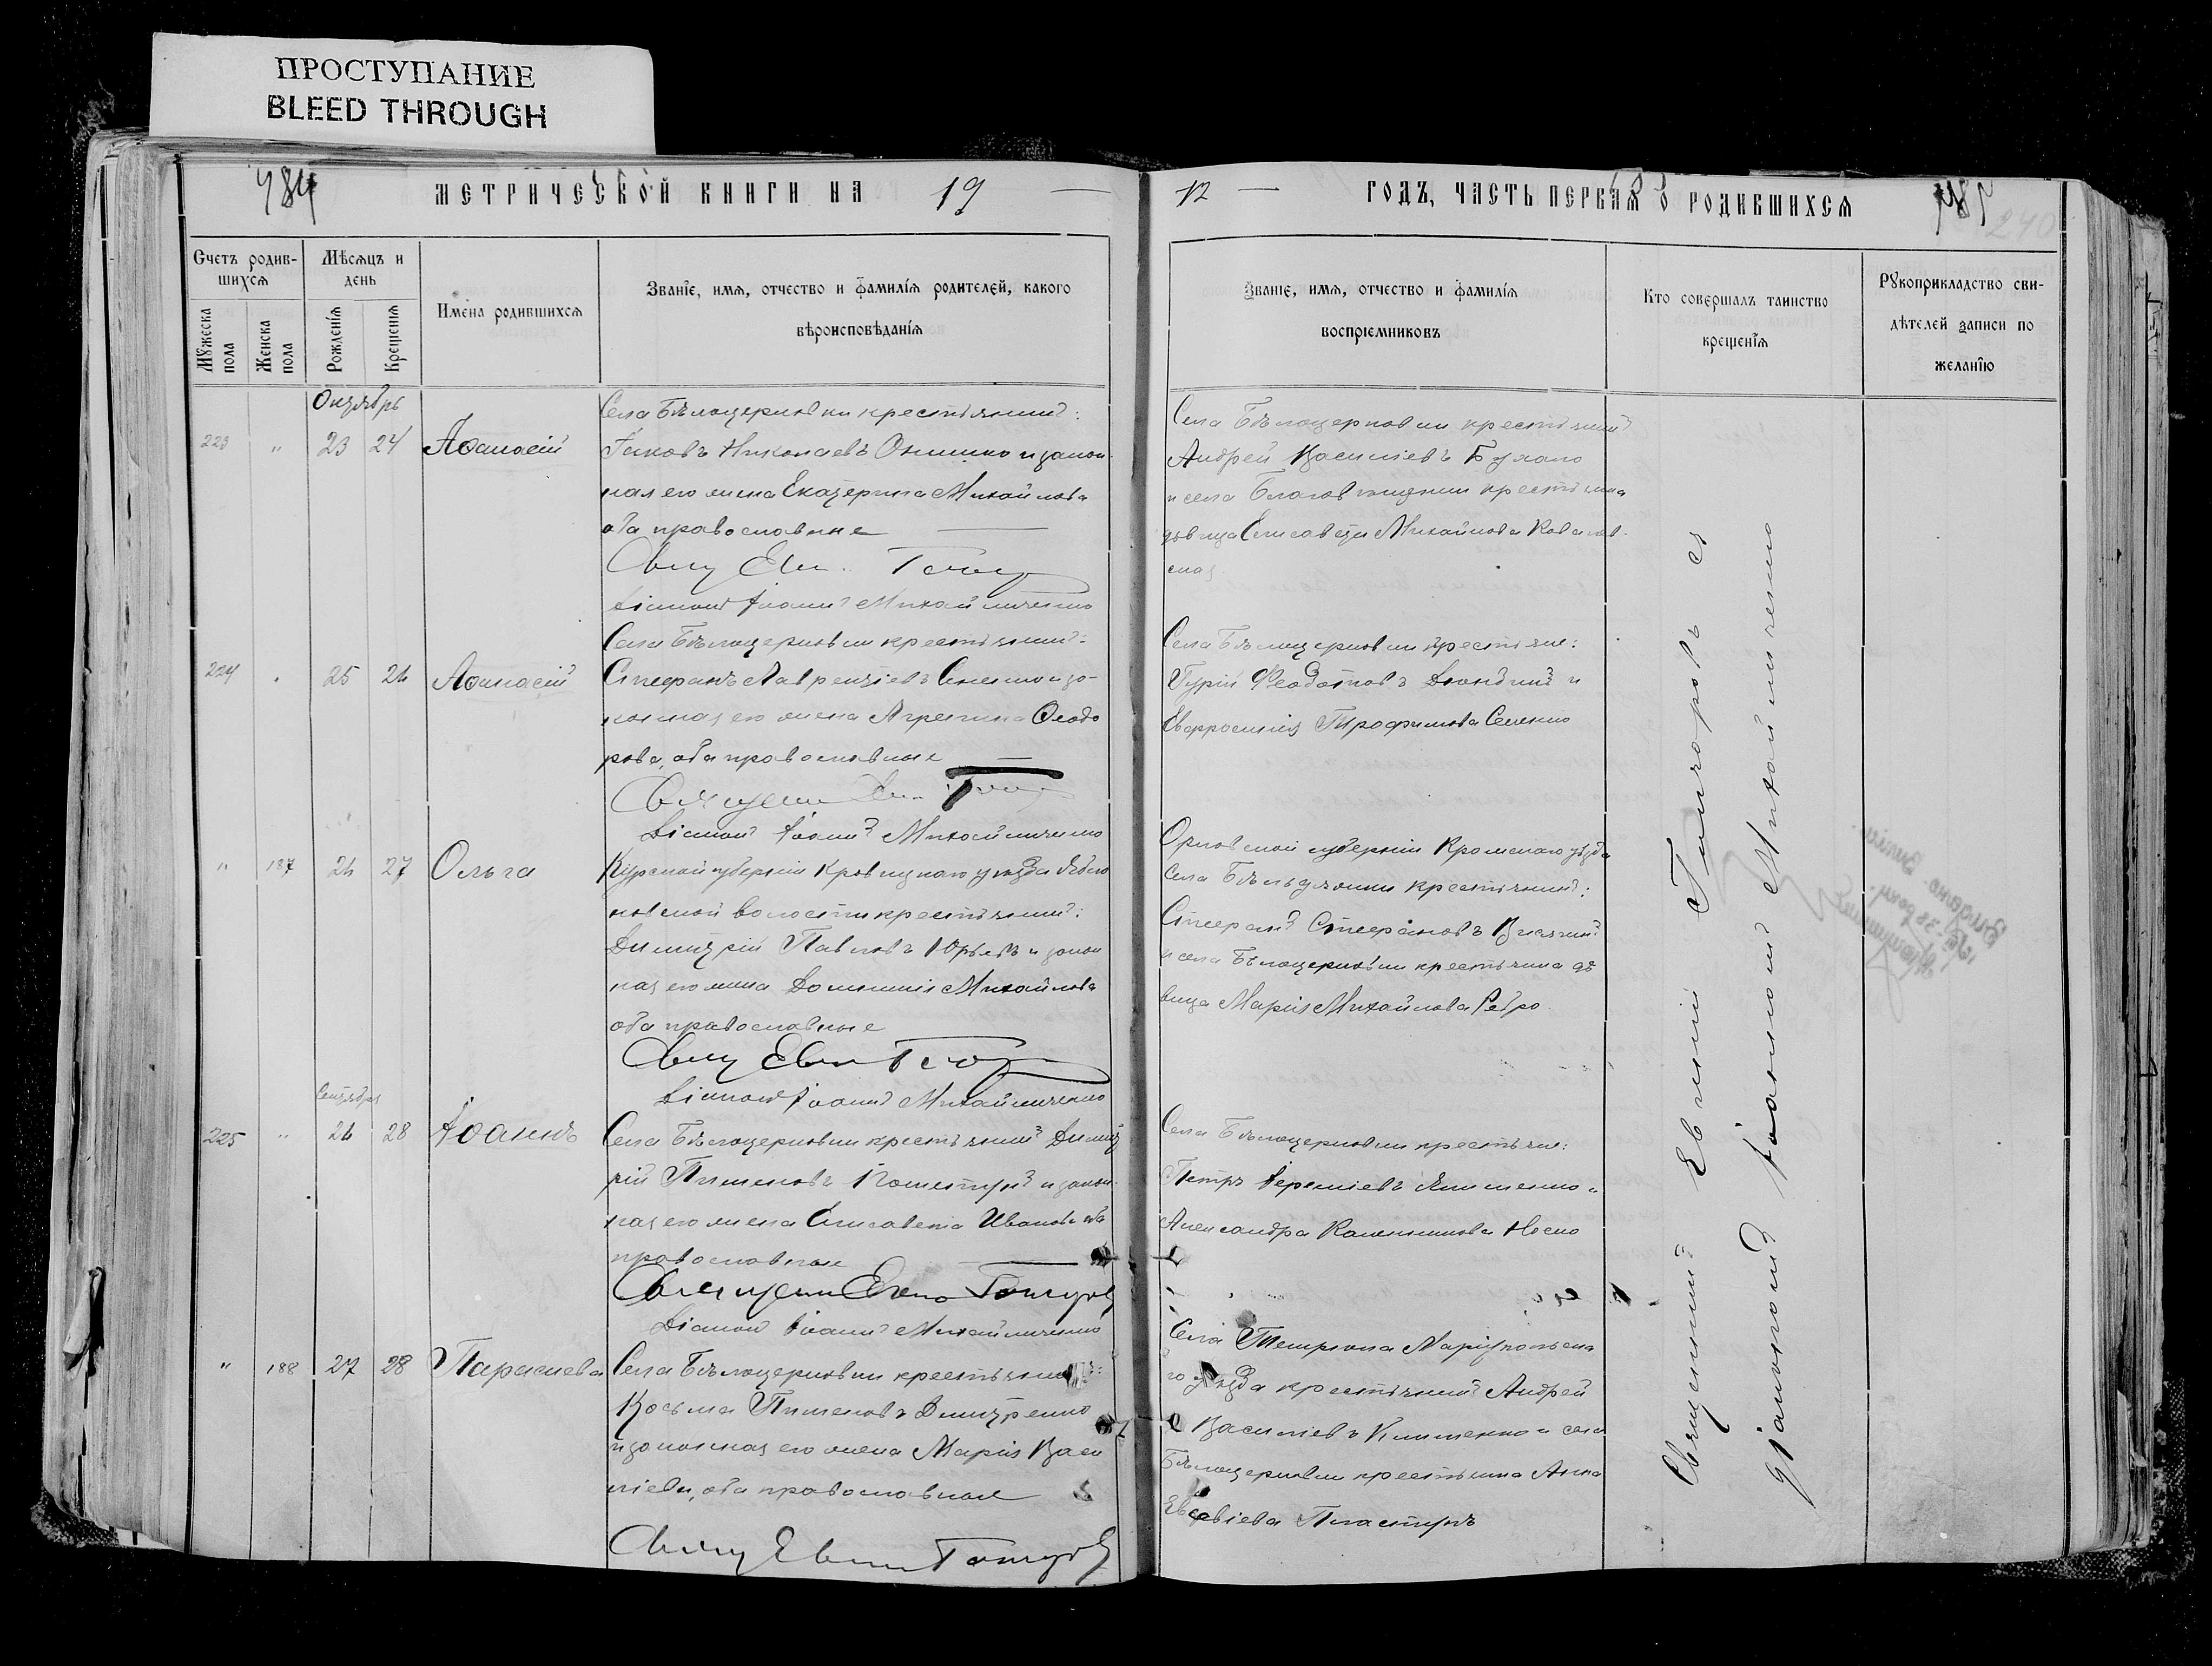 ПРОСТУПАНИЕ
BLEED THROUGH
784
МЕТРИЧЕСКОЙ КНИГИ НА 19
12 ГОДЪ, ЧАСТЬ ПЕРВАЯ О РОДИВШИХСЯ
785
240
Счетъ родив-
шихся
Мѣсяцъ и
день
Мужеска
пола
Женска
пола
Рожденія
Крещенія
Имена родившихся
Званіе, имя, отчество и фамилія родителей, какого
вѣроисповѣданія
Званіе, имя, отчество и фамилія
воспріемниковъ
Кто совершалъ таинство
крещенія
Рукоприкладство сви-
дѣтелей записи по
желанію
Октябрь
223 " 23 24 Аѳанасій
Села Бѣлоцерковки крестьянинъ:
Іаковъ Николаевъ Онишко и закон-
ная его жена Екатерина Михайлова
оба православные
Свящ Евг.
Діаконъ Іоаннъ Михайличенко
Села Бѣлоцерковки крестьянинъ
Андрей Василіевъ Бухало
и села Благовѣщенки крестьянка
дѣвица Елисавета Михайлова Ковалев-
ская
224 " 25 26 Аѳанасій
Села Бѣлоцерковки крестьянинъ:
Стефанъ Лаврентіевъ и за-
конная его жена Агрепина Ѳеодо
рова, оба православные
Священ
Діаконъ Іоаннъ Михайличенко
Села Бѣлоцерковки крестьяне:
Гурій Феодотовъ и
Евфросинія Трофимова Семенко
" 187 26 27 Ольга
Курской губерніи уѣзда
волости крестьянинъ:
Димитрій Павловъ Юрьевъ и закон
ная его жена Домникія Михайлова
оба православные
Свящ Евген
Діаконъ Іоаннъ Михайличенко
Орловской губерніи Кромскаго уѣзда
села крестьянинъ:
Стефанъ Стефановъ
и села Бѣлоцерковки крестьянка дѣ
вица Марія Михайлова Ребро
Сентября
225 " 26 28 Іоаннъ
Села Бѣлоцерковки крестьянинъ Димит
рій Пименовъ и закон-
ная его жена Елисавета Иванова оба
православные
Священ Евген
Діаконъ Іоаннъ Михайличенко
Села Бѣлоцерковки крестьяне:
Петръ Іереміевъ и
Александра Калинникова Носко
" 188 27 28 Параскева
Села Бѣлоцерковки крестьянинъ:
Косьма Пименовъ Дмитренко
и законная его жена Марія Васи
ліева, оба православные
Свящ Евген
Села Темрюка Маріупольска
го уѣзда крестьянинъ Андрей
Василіевъ Клименко и села
Бѣлоцерковки крестьянка Анна
Евсевіева Пластунъ
Священникъ Евгеній
діаконъ Іоаннъ Михайличенко